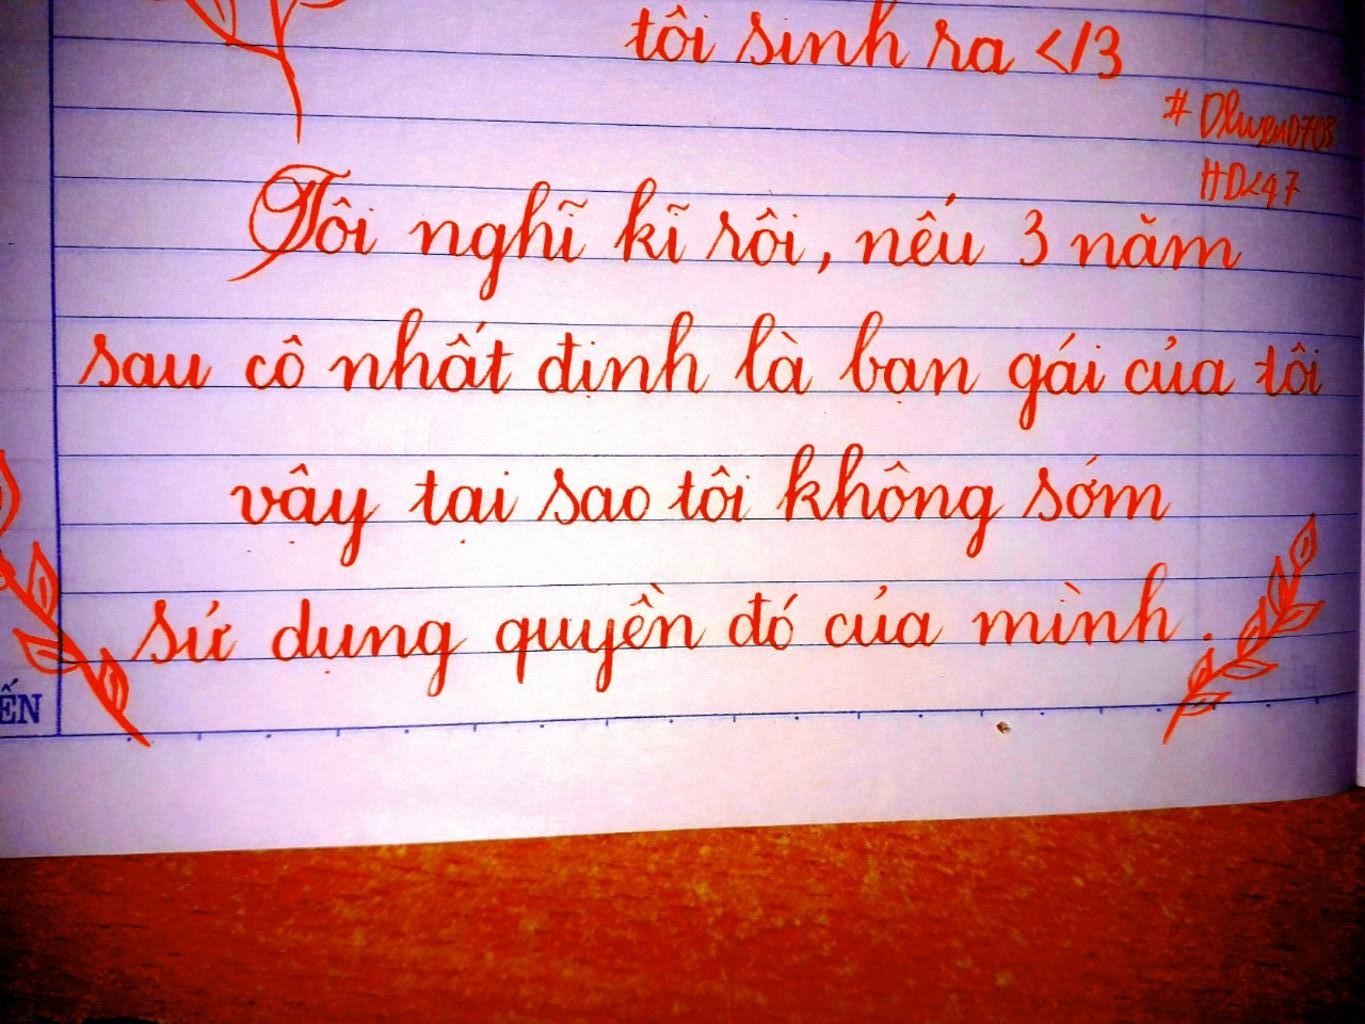 tôi sinh ra </3
Tôi nghĩ kĩ rồi, nếu 3 năm
sau cô nhất định là bạn gái của tôi
vậy tại sao tôi không sớm
sử dụng quyền đó của mình.
ẾN